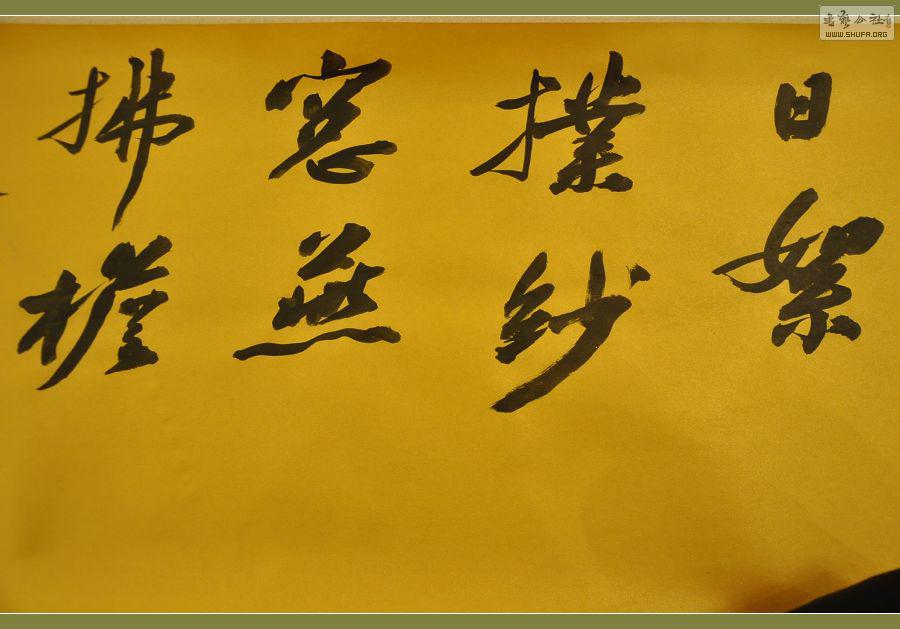 日絮
撲紗
窓燕
拂檐
書藝公社
WWW.SHUFA.ORG